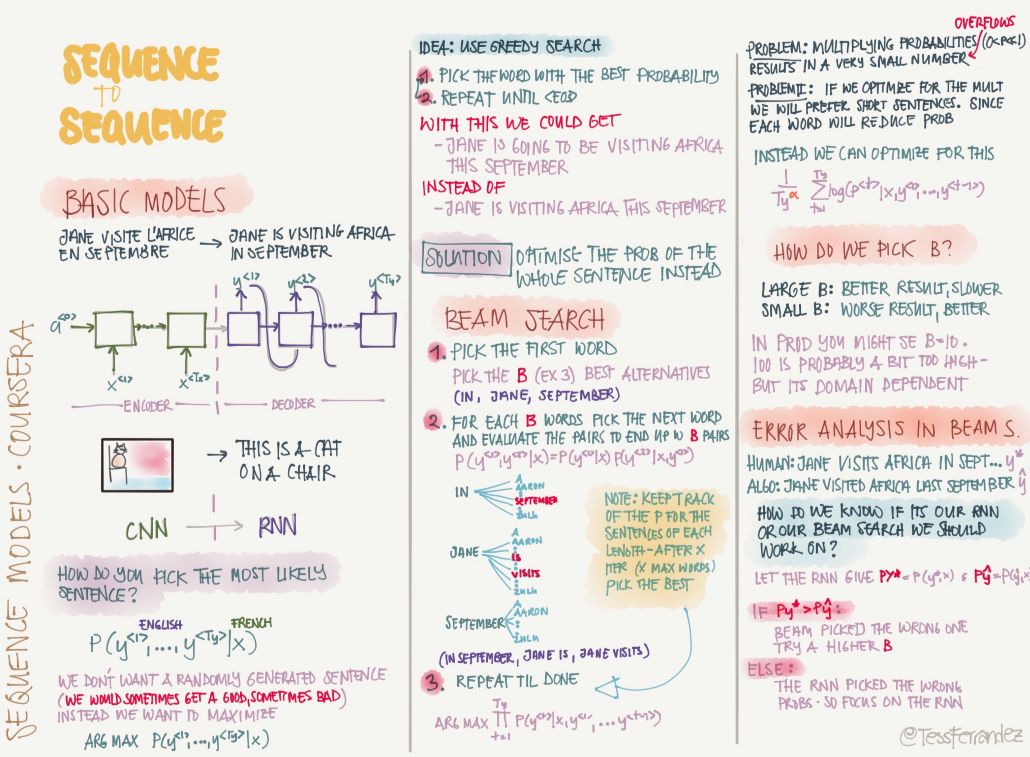 SEQUENCE MODELS · COURSERA
SEQUENCE
TO
SEQUENCE
BASIC MODELS
JANE VISITE L'AFRICE
EN SEPTEMBRE
→ JANE IS VISITING AFRICA
IN SEPTEMBER
y<1> y<2> y<Ty>
a<0>
x<1> x<Tx>
ENCODER DECODER
→ THIS IS A CAT
ON A CHAIR
CNN → RNN
HOW DO YOU PICK THE MOST LIKELY
SENTENCE?
ENGLISH FRENCH
P(y<1>,...,y<Ty>|x)
WE DON'T WANT A RANDOMLY GENERATED SENTENCE
(WE WOULD SOMETIMES GET A GOOD, SOMETIMES BAD)
INSTEAD WE WANT TO MAXIMIZE
ARG MAX P(y<1>,...,y<Ty>|x)
IDEA: USE GREEDY SEARCH
1. PICK THE WORD WITH THE BEST PROBABILITY
2. REPEAT UNTIL <EOS>
WITH THIS WE COULD GET
- JANE IS GOING TO BE VISITING AFRICA
THIS SEPTEMBER
INSTEAD OF
- JANE IS VISITING AFRICA THIS SEPTEMBER
SOLUTION OPTIMISE THE PROB OF THE
WHOLE SENTENCE INSTEAD
BEAM SEARCH
1. PICK THE FIRST WORD
PICK THE B (EX 3) BEST ALTERNATIVES
(IN, JANE, SEPTEMBER)
2. FOR EACH B WORDS PICK THE NEXT WORD
AND EVALUATE THE PAIRS TO END UP W B PAIRS
P(y<1>,y<2>|x)=P(y<1>|x) P(y<2>|x,y<1>)
IN
A
AARON
SEPTEMBER
ZULU
JANE
A
AARON
IS
VISITS
ZULU
SEPTEMBER
A
AARON
ZULU
NOTE: KEEP TRACK
OF THE P FOR THE
SENTENCES OF EACH
LENGTH - AFTER X
ITER (X MAX WORDS)
PICK THE BEST
(IN SEPTEMBER, JANE IS, JANE VISITS)
3. REPEAT TIL DONE
ARG MAX Ty ∏ t=1 P(y<t>|x,y<1>,...y<t-1>)
OVERFLOWS
PROBLEM: MULTIPLYING PROBABILITIES (0<P<1)
RESULTS IN A VERY SMALL NUMBER
PROBLEM II: IF WE OPTIMIZE FOR THE MULT
WE WILL PREFER SHORT SENTENCES. SINCE
EACH WORD WILL REDUCE PROB
INSTEAD WE CAN OPTIMIZE FOR THIS
1/Ty^α Ty Σ t=1 log(P<t>|x,y<1>,...,y<t-1>)
HOW DO WE PICK B?
LARGE B: BETTER RESULT, SLOWER
SMALL B: WORSE RESULT, BETTER
IN PROD YOU MIGHT SE B=10.
100 IS PROBABLY A BIT TOO HIGH -
BUT ITS DOMAIN DEPENDENT
ERROR ANALYSIS IN BEAM S.
HUMAN: JANE VISITS AFRICA IN SEPT... y*
ALGO: JANE VISITED AFRICA LAST SEPTEMBER ŷ
HOW DO WE KNOW IF ITS OUR RNN
OR OUR BEAM SEARCH WE SHOULD
WORK ON?
LET THE RNN GIVE Py*=P(y*,x) & Pŷ=P(ŷ,x
IF Py*>Pŷ:
BEAM PICKED THE WRONG ONE
TRY A HIGHER B
ELSE:
THE RNN PICKED THE WRONG
PROBS - SO FOCUS ON THE RNN
@TessFerrandez